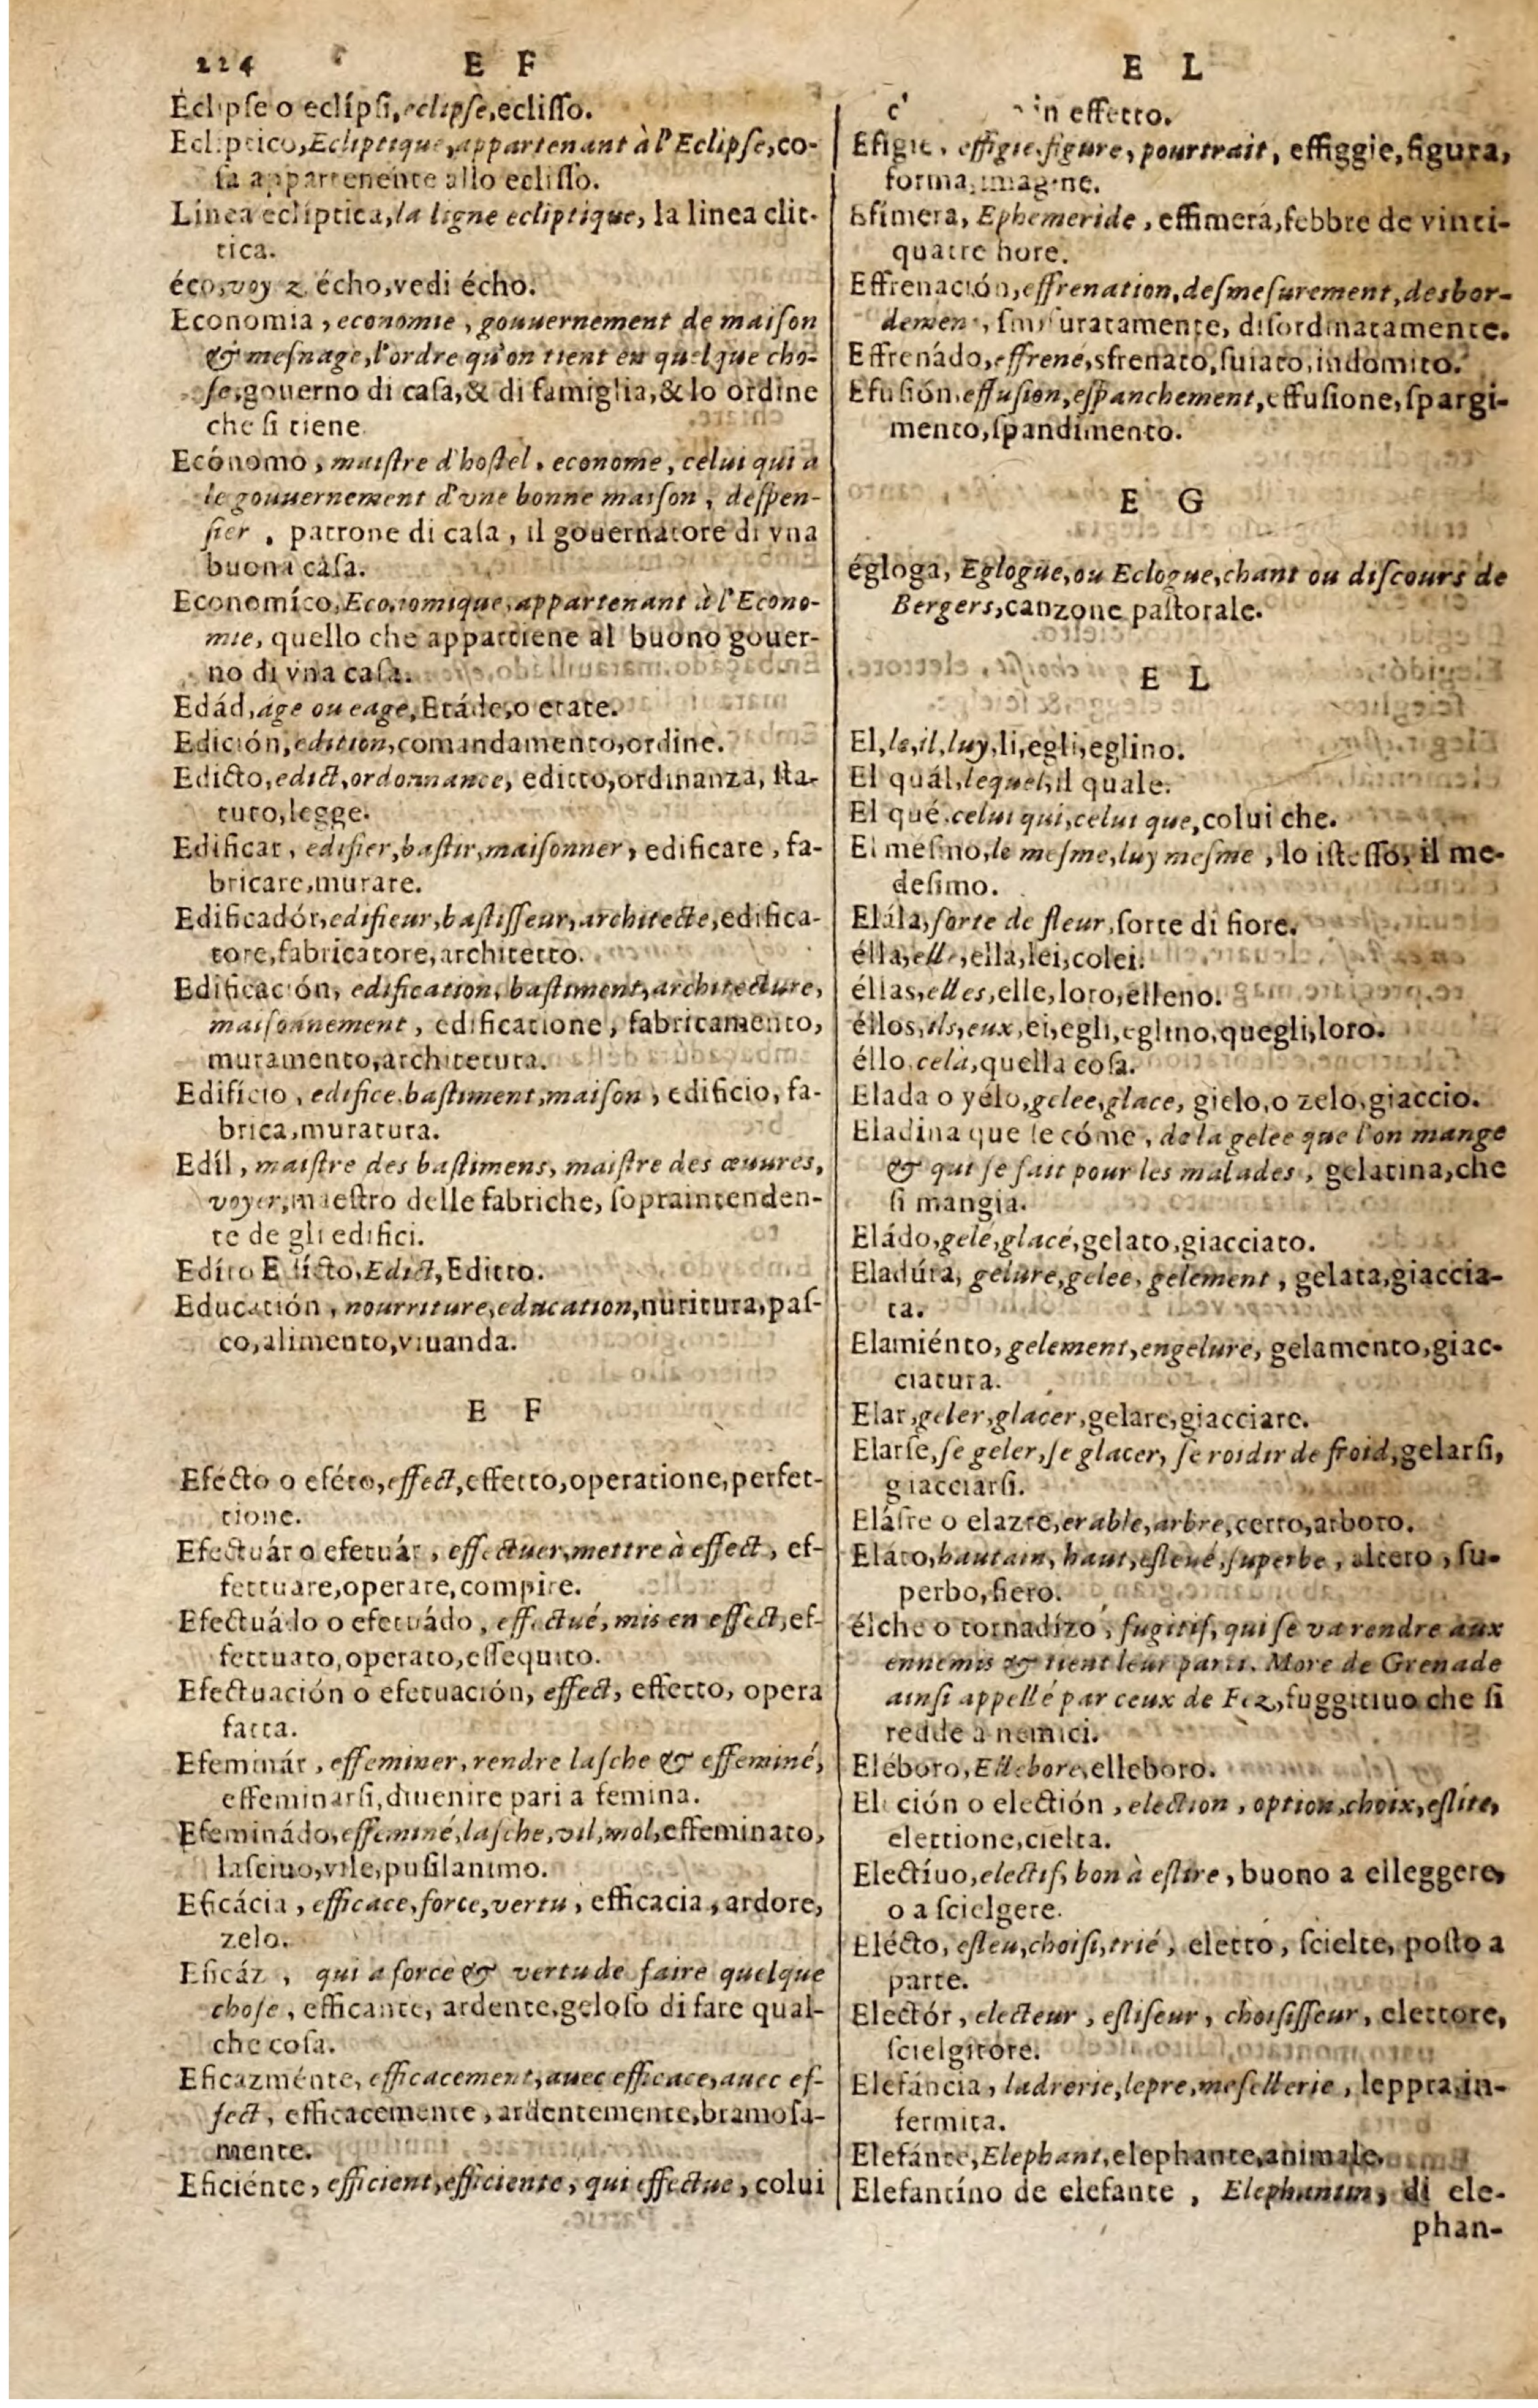 224 E F
Éclipſe o eclípſi, eclipſe, ecliſſo.
Ecliptico, Ecliptique, appartenant à l'Eclipſe, co-
ſa appartenente allo ecliſſo.
Línea eclíptica, la ligne ecliptique, la linea clit-
tica.
éco, voyez écho, vedi écho.
Economia, economie, gouuernement de maiſon
& meſnage, l'ordre qu'on tient en quelque cho-
ſe, gouerno di caſa, & di famiglia, & lo ordine
che ſi tiene
Ecónomo, maiſtre d'hoſtel, econome, celui qui a
le gouuernement d'vne bonne maiſon, deſpen-
ſier, patrone di caſa, il gouernatore di vna
buona caſa.
Economíco, Economique, appartenant à l'Econo-
mie, quello che appartiene al buono gouer-
no di vna caſa.
Edád, âge ou eage, Etáde, o etate.
Edición, edition, comandamento, ordine.
Edicto, edict, ordonnance, editto, ordinanza, ſta-
tuto, legge.
Edificar, edifier, baſtir, maiſonner, edificare, fa-
bricare, murare.
Edificadór, edifieur, baſtiſſeur, architecte, edifica-
tore, fabricatore, architetto.
Edificación, edification, baſtiment, architecture,
maiſonnement, edificatione, fabricamento,
muramento, architetura.
Edifício, edifice, baſtiment, maiſon, edificio, fa-
brica, muratura.
Edíl, maiſtre des baſtimens, maiſtre des œuures,
voyer, maeſtro delle fabriche, ſopraintenden-
te de gli edifici.
Edíto Edícto, Edict, Editto.
Educatión, nourriture, education, nuritura, paſ-
co, alimento, viuanda.
E F
Efécto o eféto, effect, effetto, operatione, perfet-
tione.
Efectuár o efetuár, effectuer, mettre à effect, ef-
fettuare, operare, compire.
Efectuádo o efetuádo, effectué, mis en effect, ef-
fettuato, operato, eſſequito.
Efectuación o efetuación, effect, effetto, opera
fatta.
Efeminár, effeminer, rendre laſche & effeminé,
effeminarſi, diuenire pari a femina.
Efeminádo, effeminé, laſche, vil, mol, effeminato,
laſciuo, vile, puſilanimo.
Eficácia, efficace, force, vertu, efficacia, ardore,
zelo.
Eficáz, qui a force & vertu de faire quelque
choſe, efficante, ardente, geloſo di fare qual-
che coſa.
Eficazménte, efficacement, auec efficace, auec ef-
fect, efficacemente, ardentemente, bramoſa-
mente.
Eficiénte, efficient, efficiente, qui effectue, colui
E L
c' in effetto.
Efigie, effigie, figure, pourtrait, effiggie, figura,
forma, imagine.
Efímera, Ephemeride, effimera, febbre de vinti-
quatre hore.
Effrenación, effrenation, deſmeſurement, desbor-
demen, ſmiſuratamente, diſordinatamente.
Effrenádo, effrené, sfrenato, ſuiato, indomito.
Efuſión, effuſion, eſpanchement, effuſione, ſpargi-
mento, ſpandimento.
E G
égloga, Eglogue, ou Eclogue, chant ou diſcours de
Bergers, canzone paſtorale.
E L
El, le, il, luy, li, egli, eglino.
El quál, lequel, il quale.
El qué, celui qui, celui que, colui che.
El meſmo, le meſme, luy meſme, lo iſteſſo, il me-
deſimo.
Elála, ſorte de fleur, ſorte di fiore.
élla, elle, ella, lei, colei.
éllas, elles, elle, loro, elleno.
éllos, ils, eux, ei, egli, eglino, quegli, loro.
éllo, celà, quella coſa.
Elada o yélo, gelee, glace, gielo, o zelo, giaccio.
Eladina que ſe cóme, de la gelee que l'on mange
& qui ſe fait pour les malades, gelatina, che
ſi mangia.
Eládo, gelé, glacé, gelato, giacciato.
Eladúra, gelure, gelee, gelement, gelata, giaccia-
ta.
Elamiénto, gelement, engelure, gelamento, giac-
ciatura.
Elar, geler, glacer, gelare, giacciare.
Elarſe, ſe geler, ſe glacer, ſe roidir de froid, gelarſi,
giacciarſi.
Eláſre o elazre, erable, arbre, cerro, arboro.
Eláto, hautain, haut, eſleué, ſuperbe, altero, ſu-
perbo, fiero.
élche o tornadízo, fugitif, qui ſe va rendre aux
ennemis & tient leur parti. More de Grenade
ainſi appellé par ceux de Fez, fuggitiuo che ſi
redde a nemici.
Eléboro, Ellebore, elleboro.
Elección o electión, election, option, choix, eſlite,
elettione, cielta.
Electíuo, electif, bon à eſlire, buono a elleggere,
o a ſcielgere.
Elécto, eſleu, choiſi, trié, eletto, ſcielte, poſto a
parte.
Electór, electeur, eſliſeur, choiſiſſeur, elettore,
ſcielgitore.
Elefáncia, ladrerie, lepre, meſellerie, leppra, in-
fermita.
Elefánte, Elephant, elephante, animale.
Elefantíno de elefante, Elephantin, di ele-
phan-